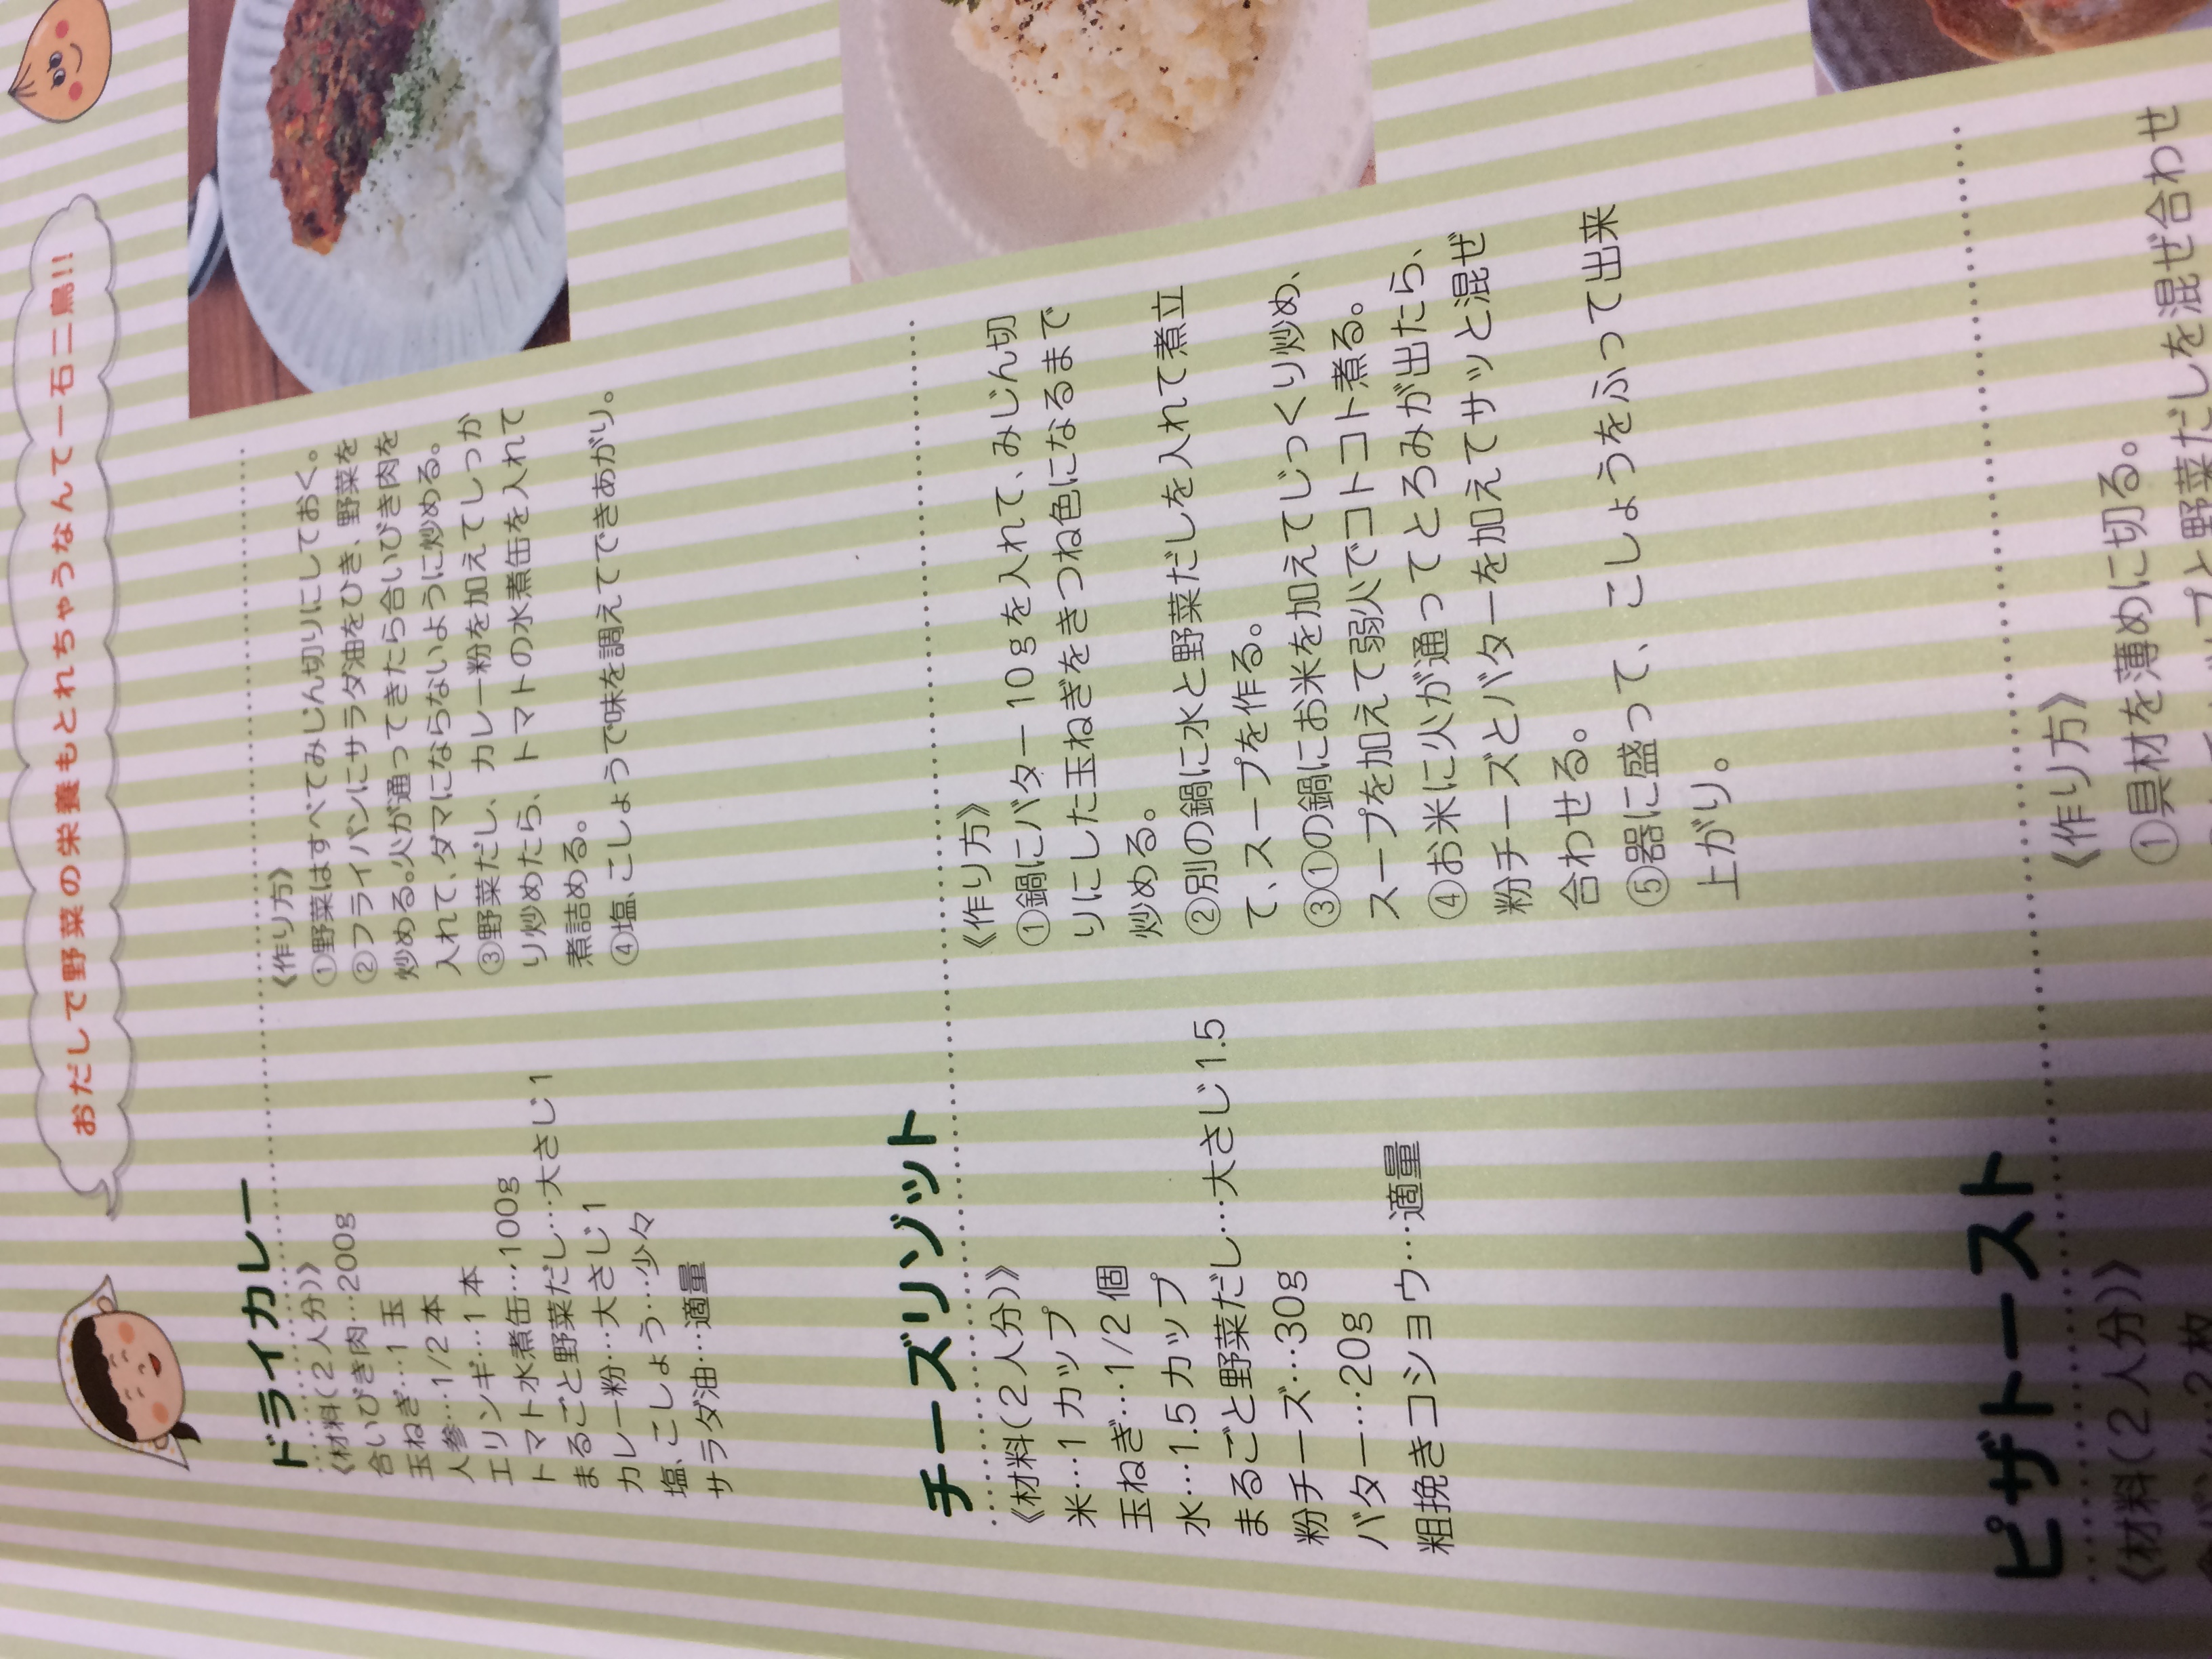 おだしで野菜の栄養もとれちゃうなんて一石二鳥!!
ドライカレー
《材料(2人分)》
合いびき肉…200g
玉ねぎ…1玉
人参…1/2本
エリンギ…1本
トマト水煮缶…100g
まるごと野菜だし…大さじ1
カレー粉…大さじ1
塩、こしょう…少々
サラダ油…適量
《作り方》
①野菜はすべてみじん切りにしておく。
②フライパンにサラダ油をひき、野菜を
炒める。火が通ってきたら合いびき肉を
入れて、ダマにならないように炒める。
③野菜だし、カレー粉を加えてしっか
り炒めたら、トマトの水煮缶を入れて
煮詰める。
④塩、こしょうで味を調えてできあがり。
チーズリゾット
《材料(2人分)》
米…1カップ
玉ねぎ…1/2個
水…1.5カップ
まるごと野菜だし…大さじ1.5
粉チーズ…30g
バター…20g
粗挽きコショウ…適量
《作り方》
①鍋にバター10gを入れて、みじん切
りにした玉ねぎをきつね色になるまで
炒める。
②別の鍋に水と野菜だしを入れて煮立
て、スープを作る。
③①の鍋にお米を加えてじっくり炒め、
スープを加えて弱火でコトコト煮る。
④お米に火が通ってとろみが出たら、
粉チーズとバターを加えてサッと混ぜ
合わせる。
⑤器に盛って、こしょうをふって出来
上がり。
ピザトースト
《材料(2人分)》
《作り方》
①具材を薄めに切る。
プと野菜だしを混ぜ合わせ